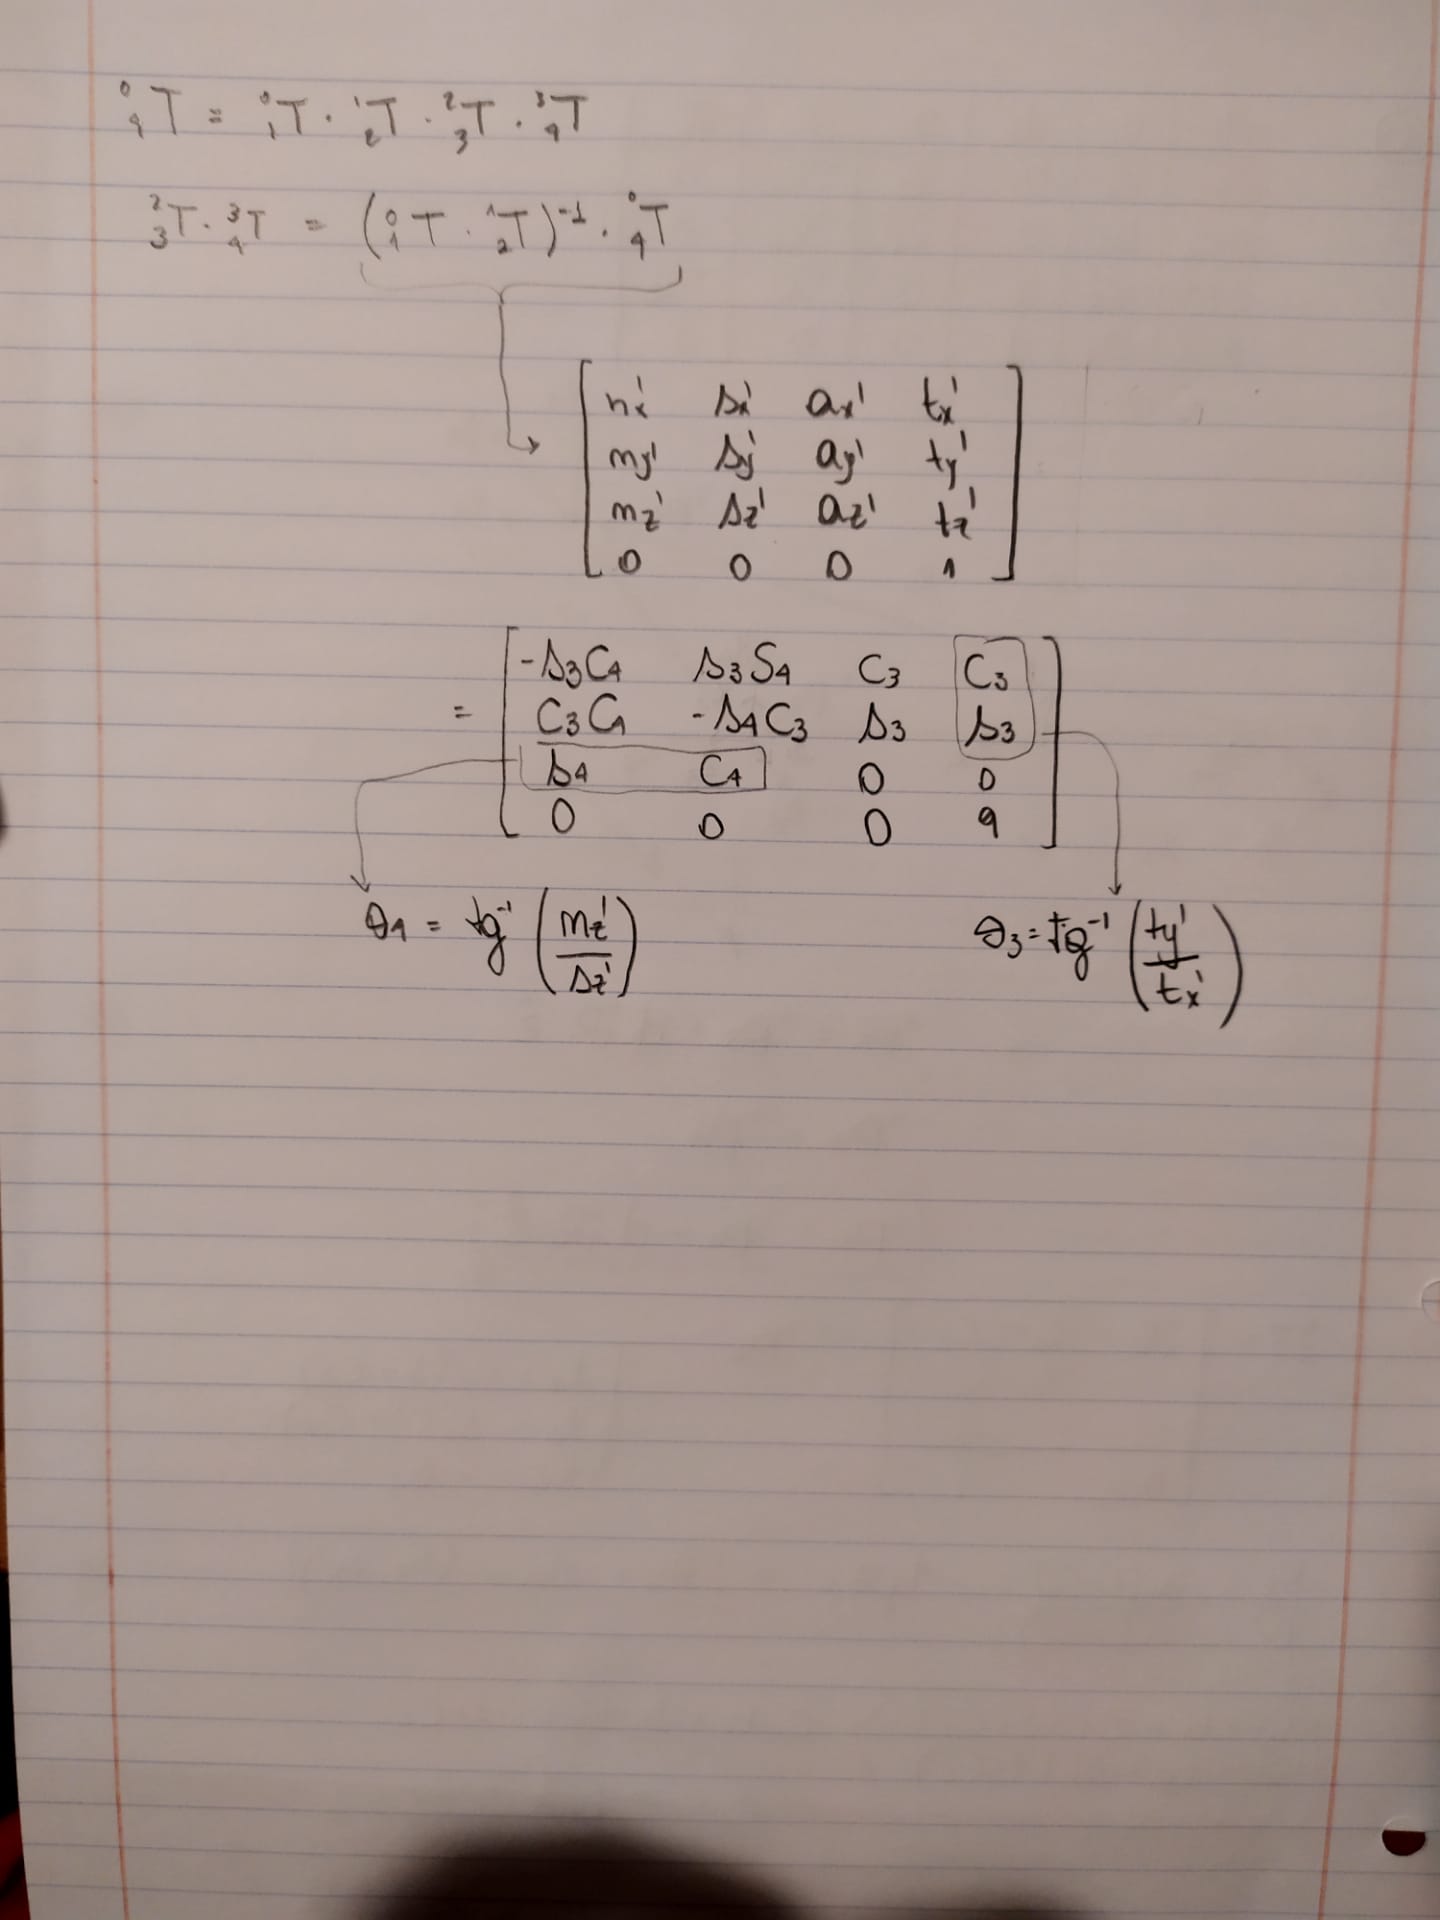 ⁰₄T = ⁰₁T · ¹₂T · ²₃T · ³₄T
²₃T · ³₄T = (⁰₁T · ¹₂T)⁻¹ · ⁰₄T
nx' sx' ax' tx'
ny' sy' ay' ty'
nz' sz' az' tz'
0 0 0 1
-s3C4 s3S4 C3 C3
= C3C4 -s4C3 s3 s3
s4 C4 0 0
0 0 0 1
θ4 = tg⁻¹ (nz'/sz') θ3 = tg⁻¹ (ty'/tx')